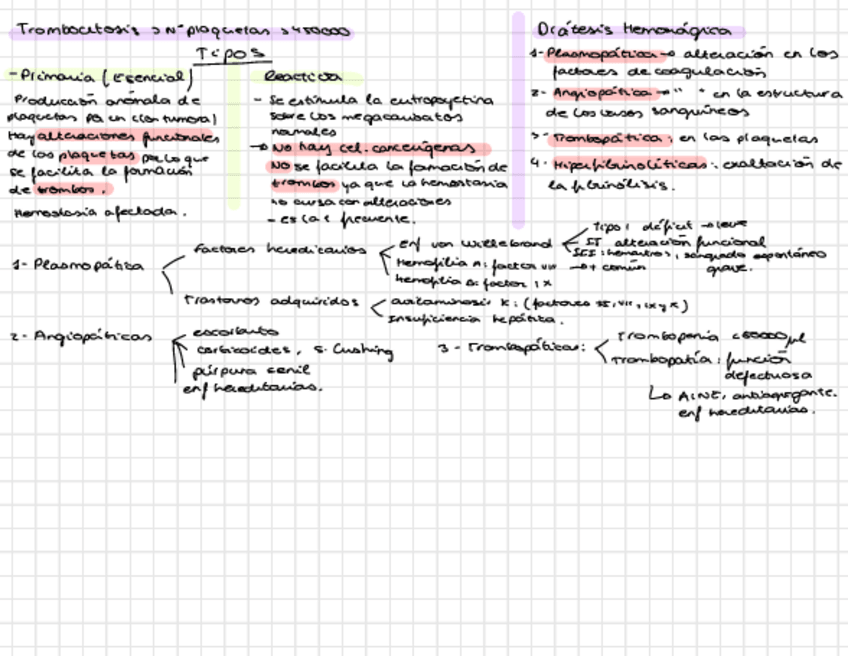 Trombocitosis > Nº plaquetas > 450000
Tipos
- Primaria (Esencial)
Producción anómala de
plaquetas por un clon tumoral
Hay alteraciones funcionales
de las plaquetas por lo que
se facilita la formación
de trombos.
Hemostasia afectada.
Reactiva
- Se estimula la
sobre los megacarioblastos
normales
→ No hay cel. cancerígenas
NO se facilita la formación de
trombos ya que la hemostasia
no cursa con alteraciones
- es la + frecuente.
Diátesis Hemorrágica
1- Plasmopática → alteración en los
factores de coagulación
2- Angiopática → " " en la estructura
de los vasos sanguíneos
3- Trombopática: en las plaquetas
4. Hiperfibrinolíticas: exaltación de
la fibrinólisis.
1- Plasmopática
Factores hereditarios
Enf von Willebrand
Tipo I déficit → leve
II alteración funcional
III: hemartros, sangrado espontáneo
grave.
Hemofilia A: factor VIII → + común
hemofilia B: factor IX
Trastornos adquiridos
avitaminosis K: (factores II, VII, IX y X)
Insuficiencia hepática.
2- Angiopáticas
escorbuto
corticoides, S. Cushing
púrpura senil
enf hereditarias.
3- Trombopáticas:
Trombopenia <50000 µl
Trombopatía: función
defectuosa
↳ AINE, antiagregante.
enf hereditarias.